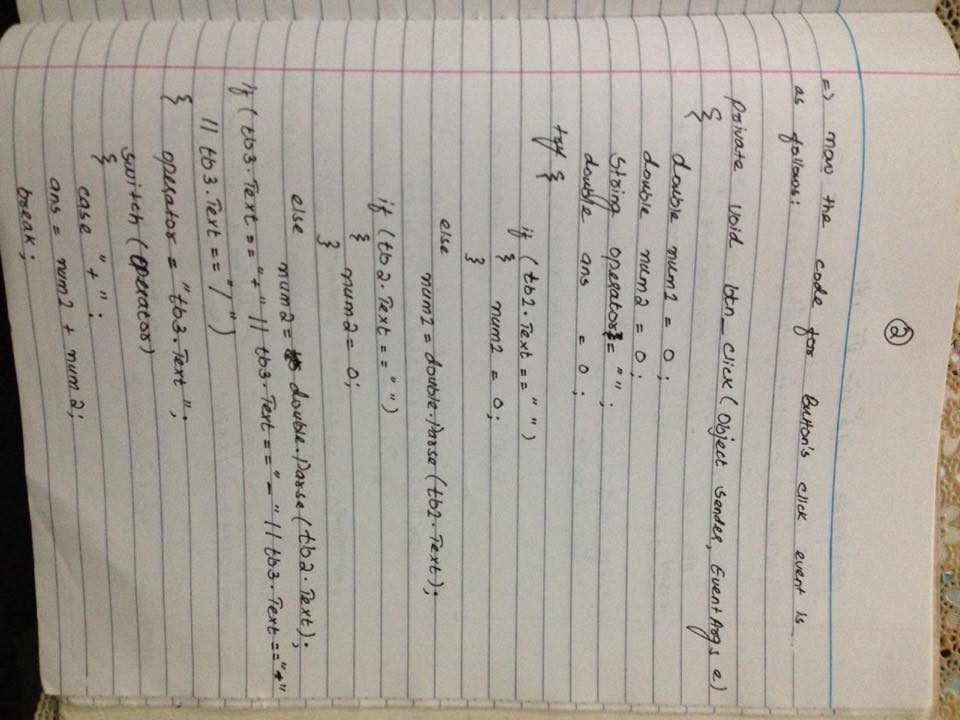 2
=) now the code for Button's click event is
as follows:
private void btn_click (Object sender, EventArgs e)
{
double num1 = 0;
double num2 = 0;
String operator = "";
double ans = 0;
try {
if (tb1.Text == " ")
{ num1 = 0;
}
else
num1 = double.Parse(tb1.Text);
if (tb2.Text == " ")
{ num2 = 0;
}
else
num2 = double.Parse(tb2.Text);
if (tb3.Text == "+" || tb3.Text == "-" || tb3.Text == "*"
|| tb3.Text == "/")
{ operator = "tb3.Text";
switch (operator)
{
case "+" :
ans = num1 + num2;
break;